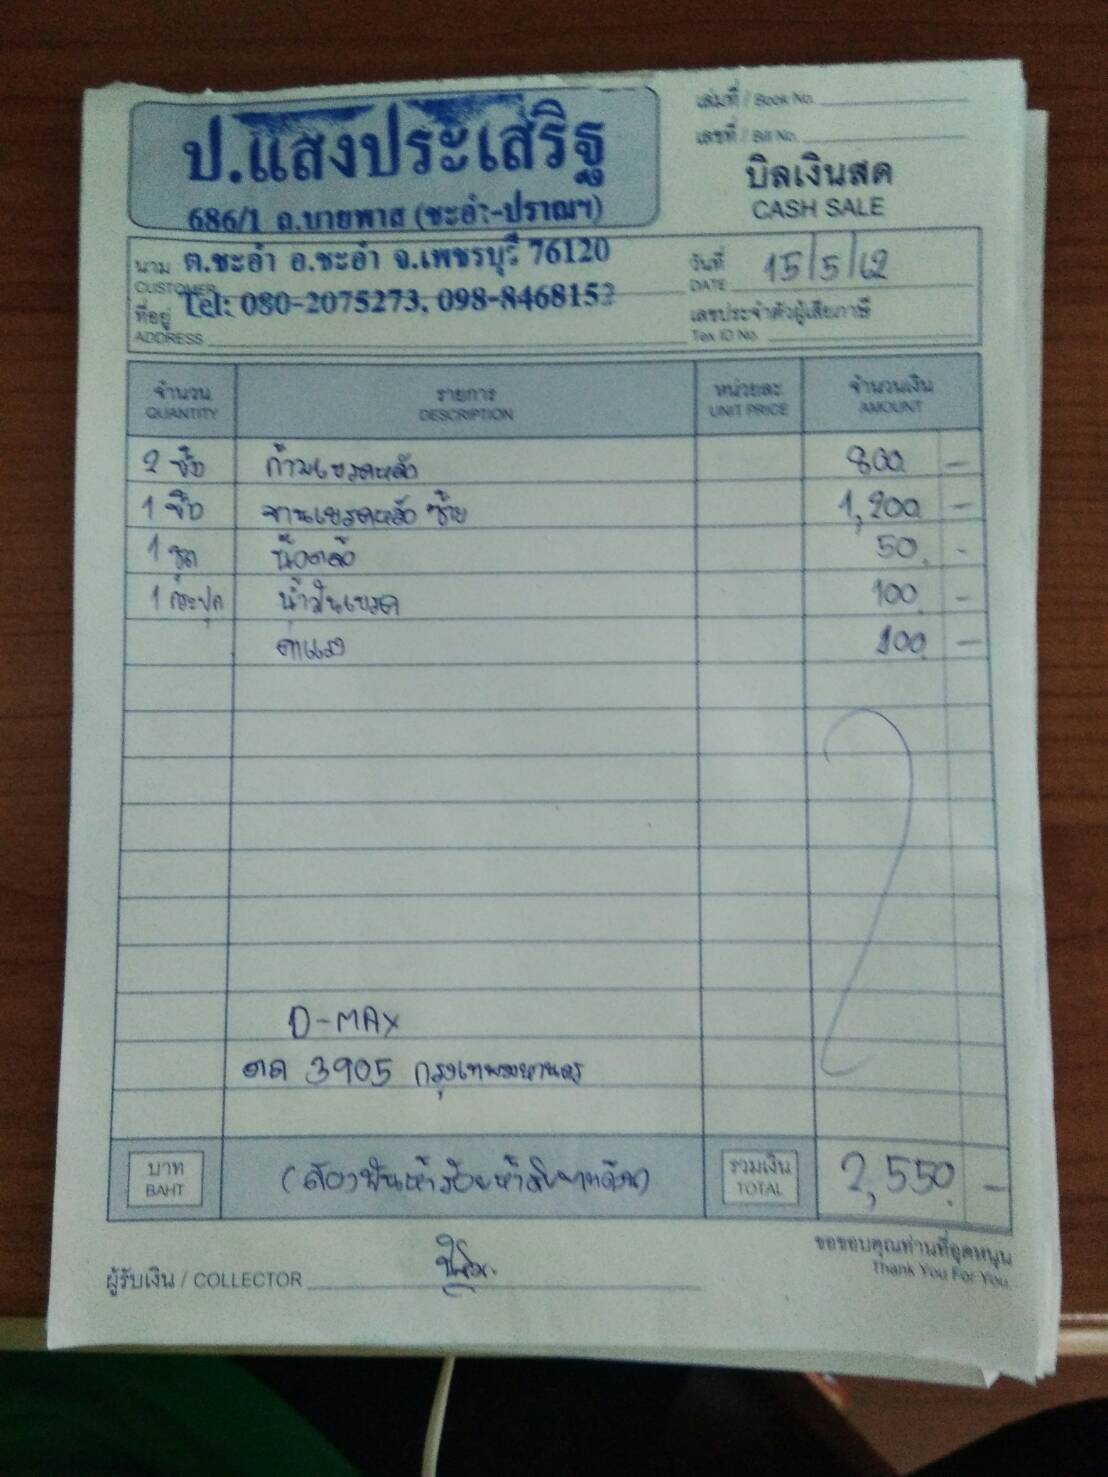 ป.แสงประเสริฐ
686/1 ถ.บายพาส (ชะอำ-ปราณฯ)
ต.ชะอำ อ.ชะอำ จ.เพชรบุรี 76120
Tel: 080-2075273, 098-8468152
เล่มที่ / Book No.
เลขที่ / Bill No.
บิลเงินสด
CASH SALE
นาม
CUSTOMER
วันที่ 15/5/62
DATE
ที่อยู่
ADDRESS
เลขประจำตัวผู้เสียภาษี
Tex ID No.
จำนวน รายการ หน่วยละ จำนวนเงิน
QUANTITY DESCRIPTION UNIT PRICE AMOUNT
2 ชิ้น ก้ามเบรคหลัง 800 -
1 ชิ้น จานเบรคหลัง ซ้าย 1,200 -
1 ชุด น๊อตล้อ 50 -
1 กระปุก น้ำมันเบรค 100 -
ค่าแรง 400 -
D-MAX
3905 กรุงเทพมหานคร
บาท (สองพันห้าร้อยห้าสิบบาทถ้วน) รวมเงิน 2,550 -
BAHT TOTAL
ขอขอบคุณท่านที่อุดหนุน
Thank You For You.
ผู้รับเงิน / COLLECTOR